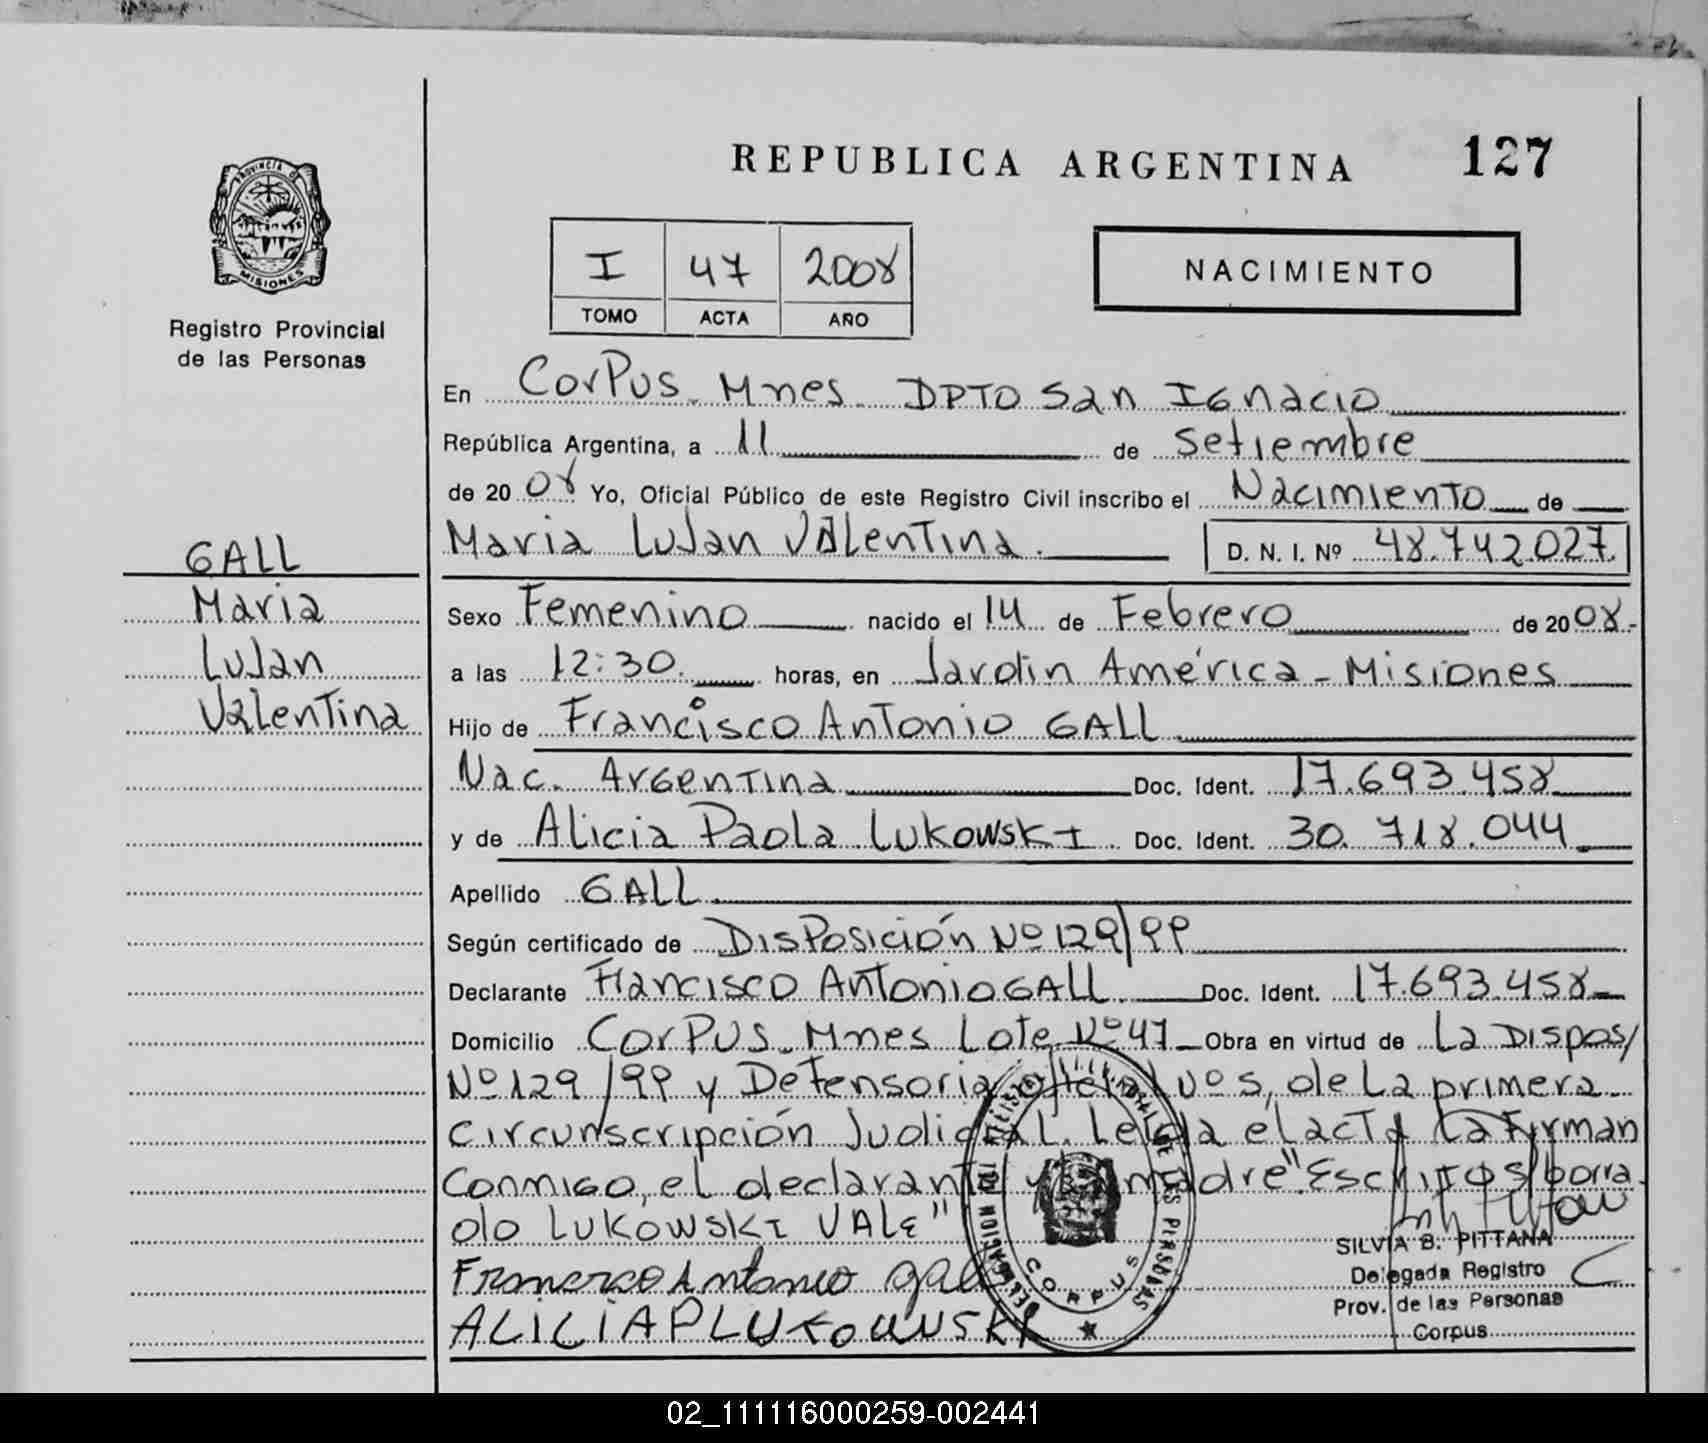 REPUBLICA ARGENTINA 127
PROVINCIA DE
MISIONES
Registro Provincial
de las Personas
I 47 2008
TOMO ACTA AÑO
NACIMIENTO
En Corpus Mnes DPTO San Ignacio
República Argentina, a 11 de Setiembre
de 2008 Yo, Oficial Público de este Registro Civil inscribo el Nacimiento de
Maria Lujan Valentina. D. N. I. Nº 48.742.027
GALL
Maria
Lujan
Valentina
Sexo Femenino nacido el 14 de Febrero de 2008.-
a las 12:30. horas, en Jardin América - Misiones
Hijo de Francisco Antonio GALL
Nac. Argentina Doc. Ident. 17.693.458
y de Alicia Paola Lukowski Doc. Ident. 30.718.044
Apellido GALL
Según certificado de Disposición Nº 129/99
Declarante Francisco Antonio GALL Doc. Ident. 17.693.458
Domicilio Corpus Mnes Lote Nº 47 Obra en virtud de La Dispos/
Nº 129/99 y Defensoria Nº 5, de La primera
circunscripción Judicial. Leida el acta La Firman
Conmigo, el declarante y la madre "Escritos/borra
do LUKOWSKI VALE"
Francisco Antonio gall
ALICIA P LUKOWSKI
DELEGACION DE LAS PERSONAS
CORPUS
SILVIA B. PITTANA
Delegada Registro
Prov. de las Personas
Corpus
02_111116000259-002441